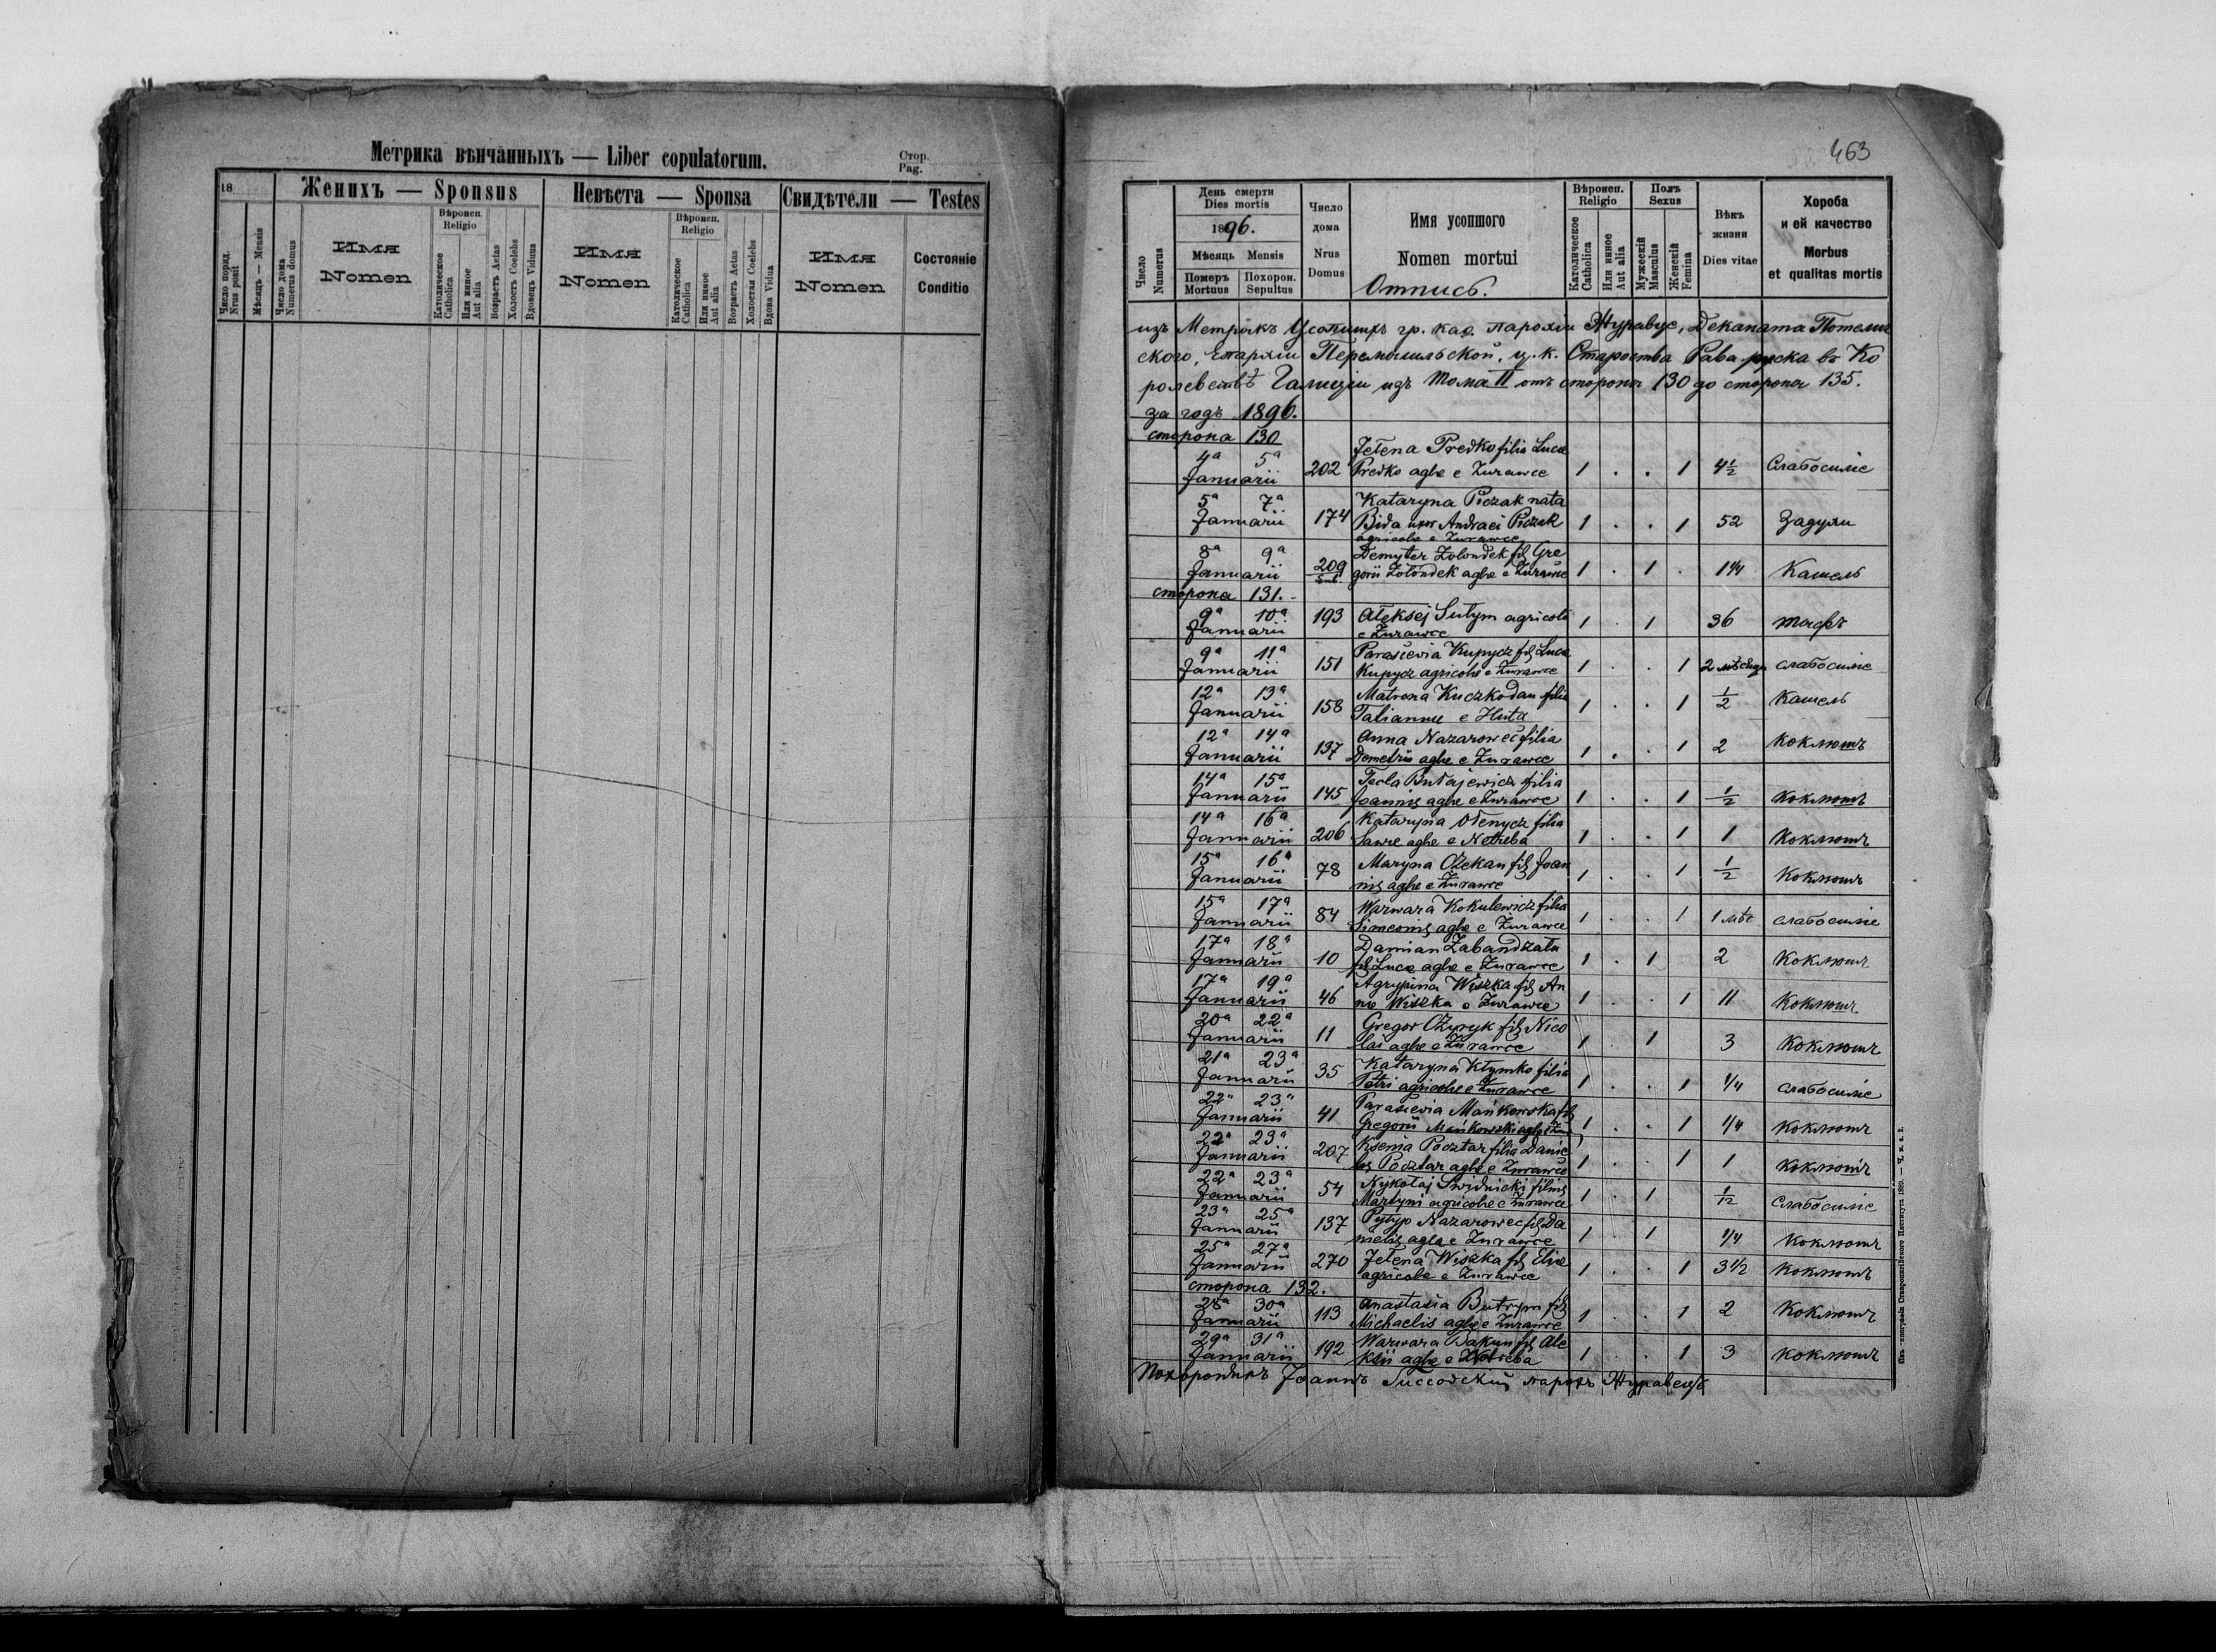 Метрика вѣнчанныхъ — Liber copulatorum.
Стор.
Pag.
18
Женихъ — Sponsus
Невѣста — Sponsa
Свидѣтели — Testes
Число поряд.
Nrus posit
Мѣсяцъ — Mensis
Число дома
Numerus domus
Имя
Nomen
Вѣроисп.
Religio
Католическое
Catholica
Или иное
Aut alia
Возрастъ Aetas
Холостъ Coelebs
Вдовецъ Viduus
Имя
Nomen
Вѣроисп.
Religio
Католическое
Catholica
Или иное
Aut alia
Возрастъ Aetas
Холостая Coelebs
Вдова Vidua
Имя
Nomen
Состояніе
Conditio
463
Число
Numerus
День смерти
Dies mortis
1896.
Мѣсяць Mensis
Померъ
Mortuus
Похорон.
Sepultus
Число
дома
Nrus
Domus
Имя усопшого
Nomen mortui
Отпись.
Вѣроисп.
Religio
Католическое
Catholica
Или иное
Aut alia
Полъ
Sexus
Мужескій
Masculus
Женскій
Femina
Вѣкъ
жизни
Dies vitae
Хороба
и ей качество
Morbus
et qualitas mortis
изъ Метрикъ Усопшихъ гр. каѳ. парохіи Журавце, Деканата Потелич
ского, Епархіи Перемышльской, ц. к. Староства Рава руска въ Ко
ролевствѣ Галиціи изъ Тома II отъ стороны 130 до стороны 135.
за годъ 1896.
сторона 130
4ª 5ª Januarii 202 Jełena Predko filia Lucae
Predko aglae e Żurawce 1 . . 1 4½ Слабосиліе
5ª 7ª Januarii 174 Kataryna Piczak nata
Bida uxor Andraei Piczak
agricolae e Żurawce 1 . . 1 52 Задухи
8ª 9ª Januarii 209 Demyter Żołondek fils Gre
gorii Żołondek aglae e Żurawce 1 . 1 . 1¼ Кашель
сторона 131.-
9ª 10ª Januarii 193 Ałeksej Sutym agricola
e Żurawce 1 . 1 36 тифъ
9ª 11ª Januarii 151 Parasievia Kupycz fils Lucae
Kupycz agricolae e Żurawce 1 . . 1 2 мѣсяцы слабосиліе
12ª 13ª Januarii 158 Matrona Kuczkodan filia
Tatiannae e Huta 1 . . 1 ½ Кашель
12ª 14ª Januarii 137 Anna Nazarowec filia
Demetrii aglae e Żurawce 1 . . 1 2 Коклюшъ
14ª 15ª Januarii 145 Tecla Bułajewicz filia
Joannis aglae e Żurawce 1 . . 1 ½ Коклюшъ
14ª 16ª Januarii 206 Kataryna Ołenycz filia
Sawae aglae e Netreba 1 . . 1 1 Коклюшъ
15ª 16ª Januarii 78 Maryna Ożekan fils Joan
nis aglae e Żurawce 1 . . 1 ½ Коклюшъ
15ª 17ª Januarii 84 Warwara Kokulewicz filia
Simeonis aglae e Żurawce 1 . . 1 1 мѣс слабосиліе
17ª 18ª Januarii 10 Damian Zabandzała
fils Lucae aglae e Żurawce 1 . 1 2 Коклюшъ
17ª 19ª Januarii 46 Agrypina Wiszka fils An
nae Wiszka e Żurawce 1 . . 1 11 Коклюшъ
20ª 22ª Januarii 11 Gregor Ożyryk fils Nico
lai aglae e Żurawce 1 . 1 3 Коклюшъ
21ª 23ª Januarii 35 Kataryna Kłymko filia
Petri agricolae e Żurawce 1 . . 1 1/4 слабосиліе
22ª 23ª Januarii 41 Parasievia Mańkowska fils
Gregorii Mańkowski aglae e Żur. 1 . . 1 1/4 Коклюшъ
22ª 23ª Januarii 207 Ksenia Pocztar filia Danie
lis Pocztar aglae e Żurawce 1 . . 1 1 Коклюшъ
22ª 23ª Januarii 54 Nykołaj Świdnicki filius
Martyni agricolae e Żurawce 1 . 1 1/12 Слабосиліе
23ª 25ª Januarii 137 Pyłyp Nazarowec fils Da
nielis aglae e Żurawce 1 . 1 1/4 Коклюшъ
25ª 27ª Januarii 270 Jełena Wiszka fils Eliae
agricolae e Żurawce 1 . . 1 3½ Коклюшъ
сторона 132.
28ª 30ª Januarii 113 Anastasia Butryn fils
Michaelis aglae e Żurawce 1 . . 1 2 Коклюшъ
29ª 31ª Januarii 192 Warwara Bakun fils Ale
ksii aglae e Netreba 1 . . 1 3 Коклюшъ
Похоронилъ Іоаннъ парохъ Журавецкій
Изъ типографіи Ставропигійского Института 1889. — Ч. в. к. 2.